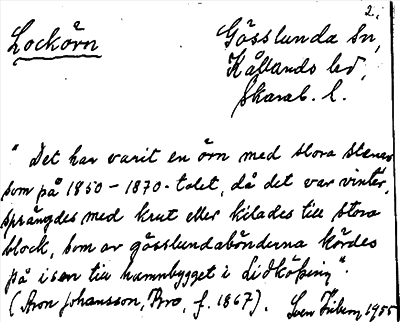 2.
Lockörn
Gösslunda sn,
Kållands hd,
Skarab. l.
"Det har varit en örn med stora stenar
som på 1850-1870-talet, då det var vinter,
sprängdes med krut eller kilades till stora
block, som av gösslundabönderna kördes
på isen till hamnbygget i Lidköping".
(Aron Johansson, Bro, f. 1867). Sven 1955